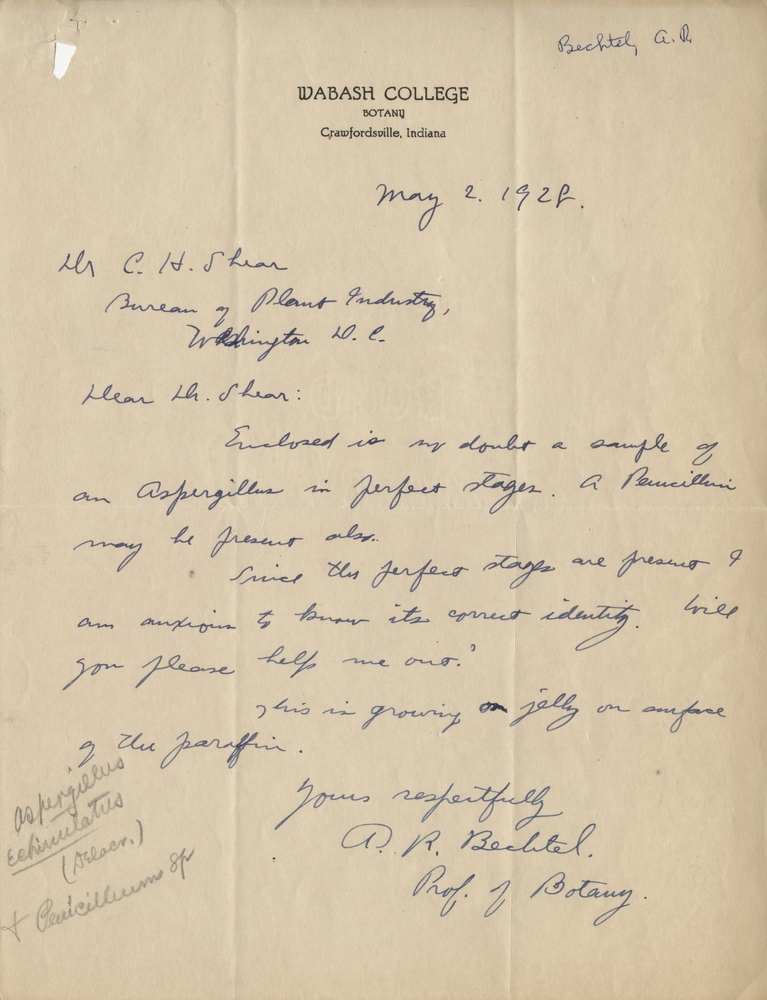 Bechtel, A. R.
WABASH COLLEGE
BOTANY
Crawfordsville, Indiana
May 2. 1928.
Dr C. H. Shear
Bureau of Plant Industry,
Washington D. C.
Dear Dr. Shear:
Enclosed is no doubt a sample of
an Aspergillus in perfect stages. A Penicillium
may be present also.
Since the perfect stages are present I
am anxious to know its correct identity. Will
you please help me out?
This is growing on jelly on surface
of the paraffin.
Yours respectfully
A. R. Bechtel.
Prof. of Botany.
Aspergillus
echinulatus
(Delacr.)
+ Penicillium sp